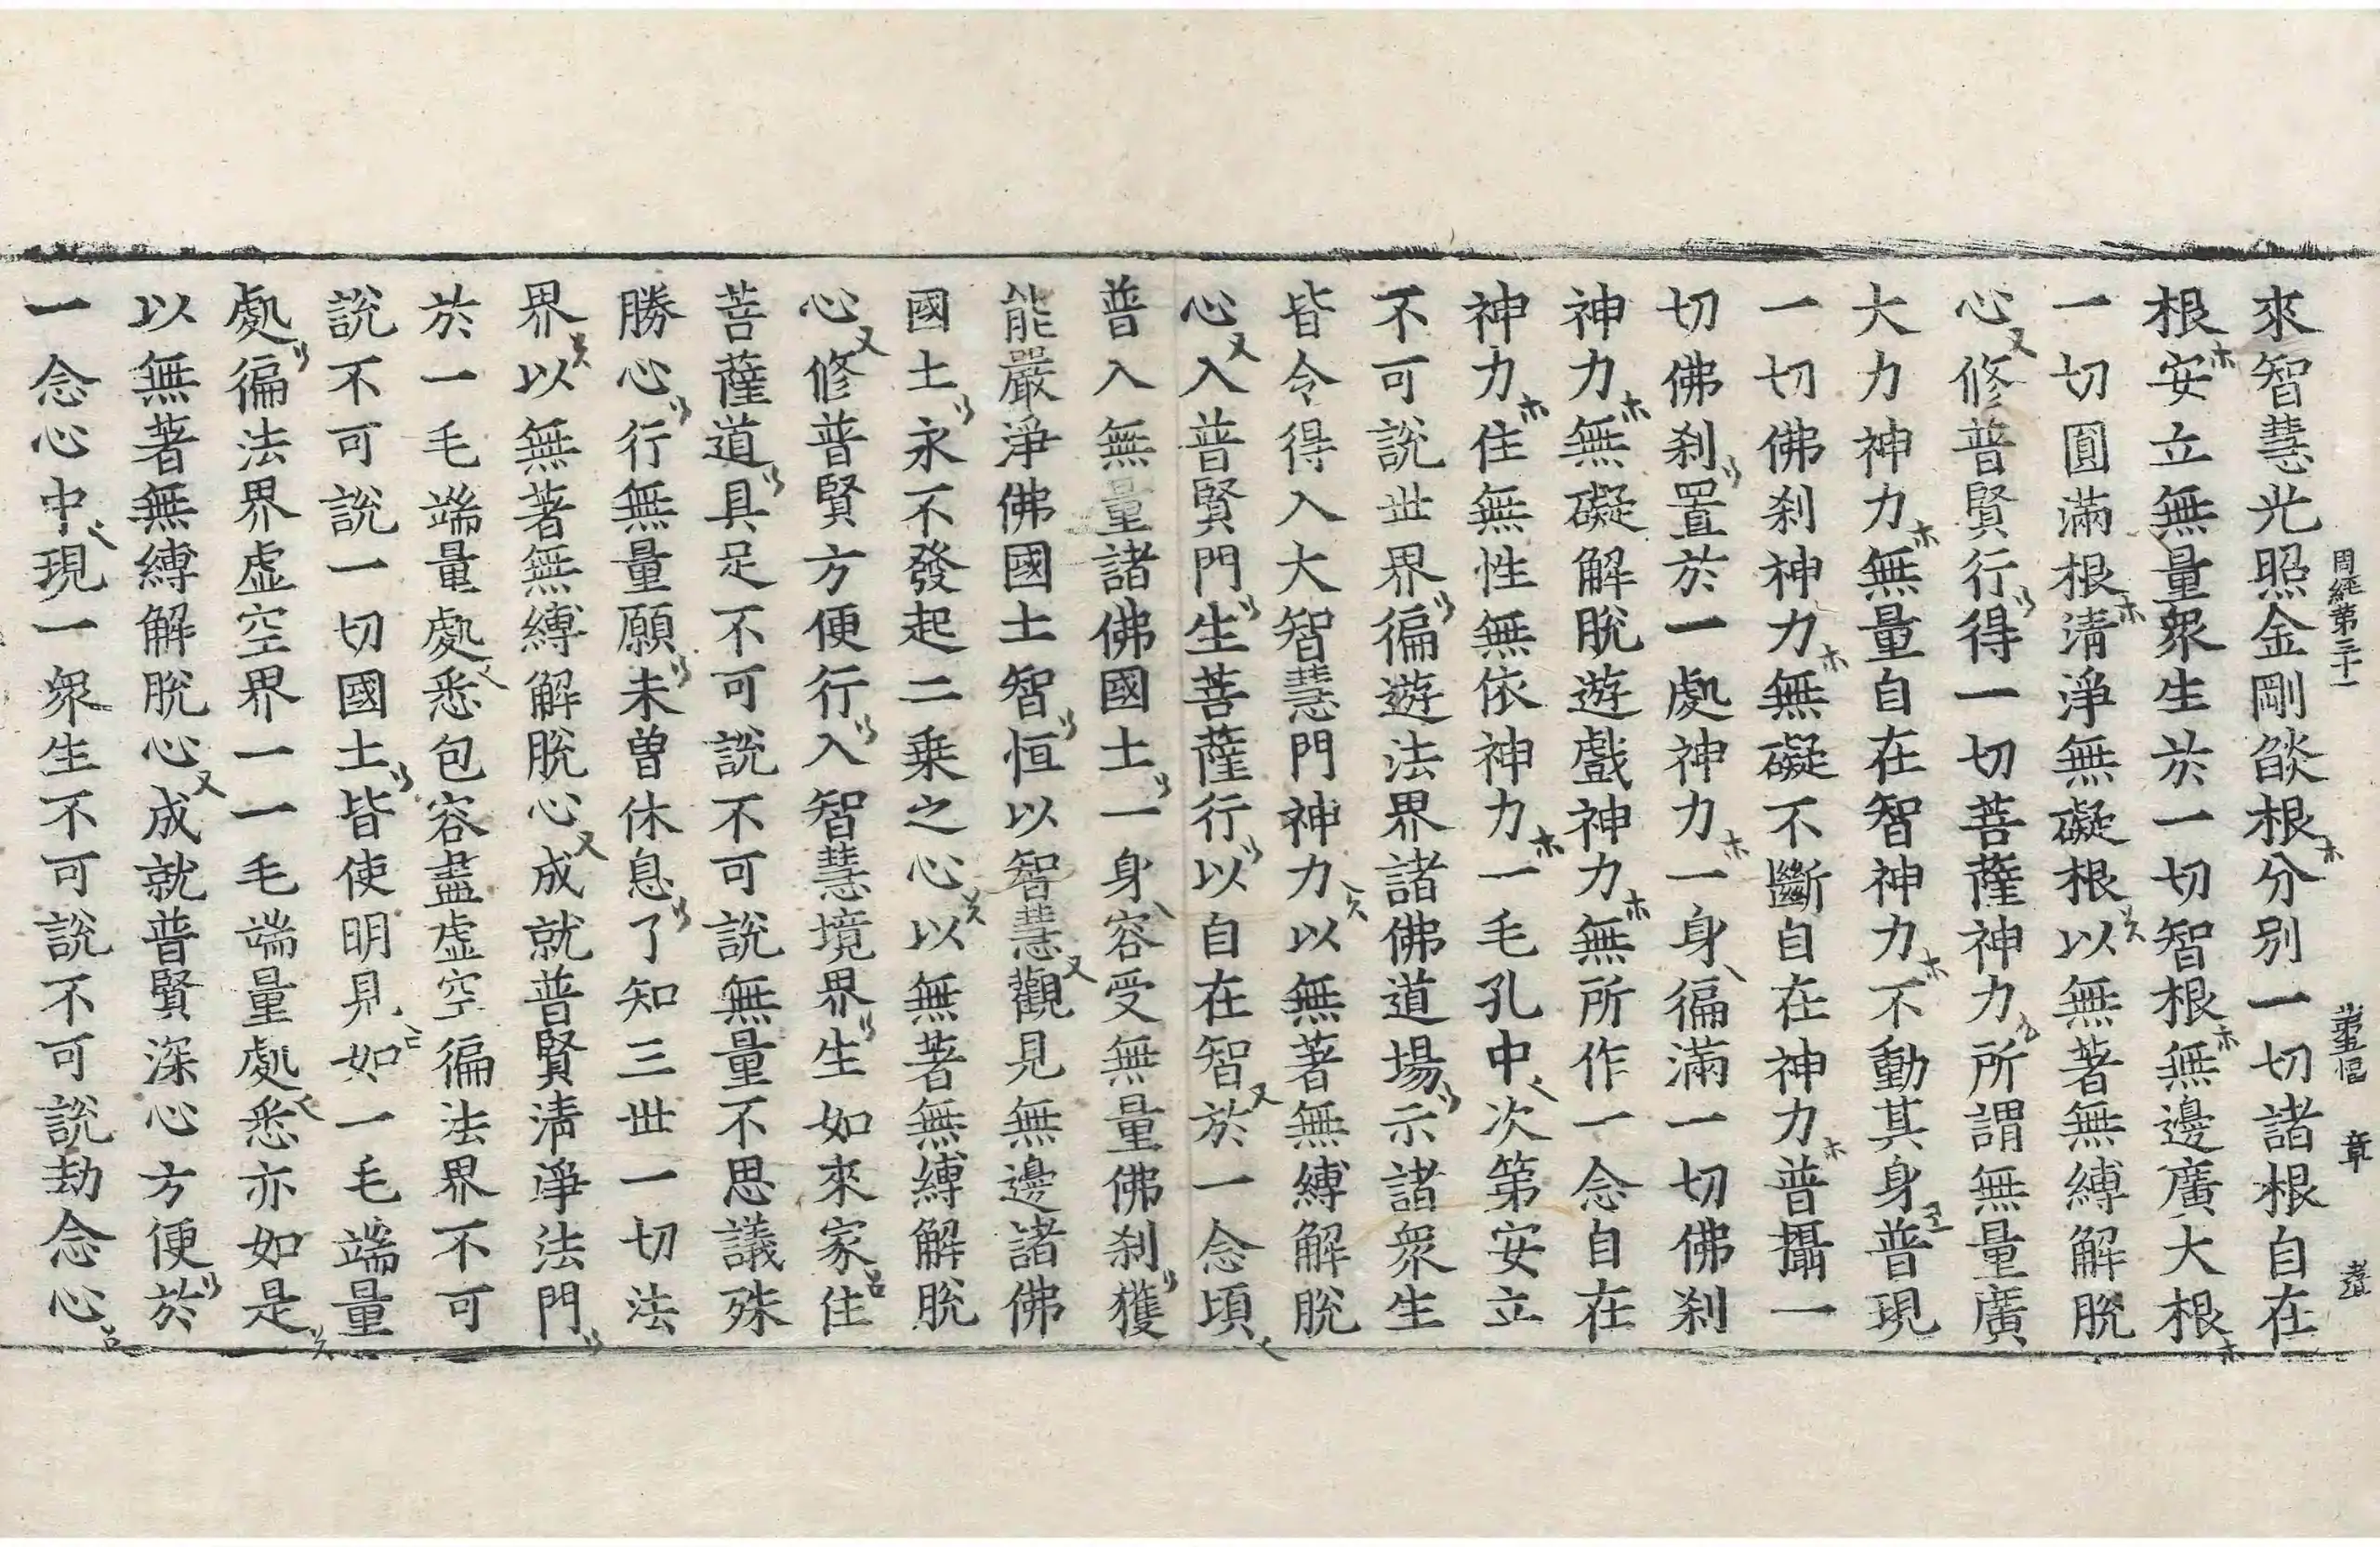 來智慧光照金剛燄根分別一切諸根自在
根安立無量衆生於一切智根無邊廣大根
一切圓滿根淸淨無礙根以無著無縛解脫
心修普賢行得一切菩薩神力所謂無量廣
大力神力無量自在智神力不動其身普現
一切佛刹神力無礙不斷自在神力普攝一
切佛刹置於一處神力一身徧滿一切佛刹
神力無礙解脫遊戲神力無所作一念自在
神力住無性無依神力一毛孔中次第安立
不可說世界徧遊法界諸佛道場示諸衆生
皆令得入大智慧門神力以無著無縛解脫
心入普賢門生菩薩行以自在智於一念頃
普入無量諸佛國土一身容受無量佛刹獲
能嚴淨佛國土智恒以智慧觀見無邊諸佛
國土永不發起二乗之心以無著無縛解脫
心修普賢方便行入智慧境界生如來家住
菩薩道具足不可說不可說無量不思議殊
勝心行無量願未曾休息了知三世一切法
界以無著無縛解脫心成就普賢淸淨法門
於一毛端量處悉包容盡虛空徧法界不可
說不可說一切國土皆使明見如一毛端量
處徧法界虛空界一一毛端量處悉亦如是
以無著無縛解脫心成就普賢深心方便於
一念心中現一衆生不可說不可說劫念心
周經第三十一
章